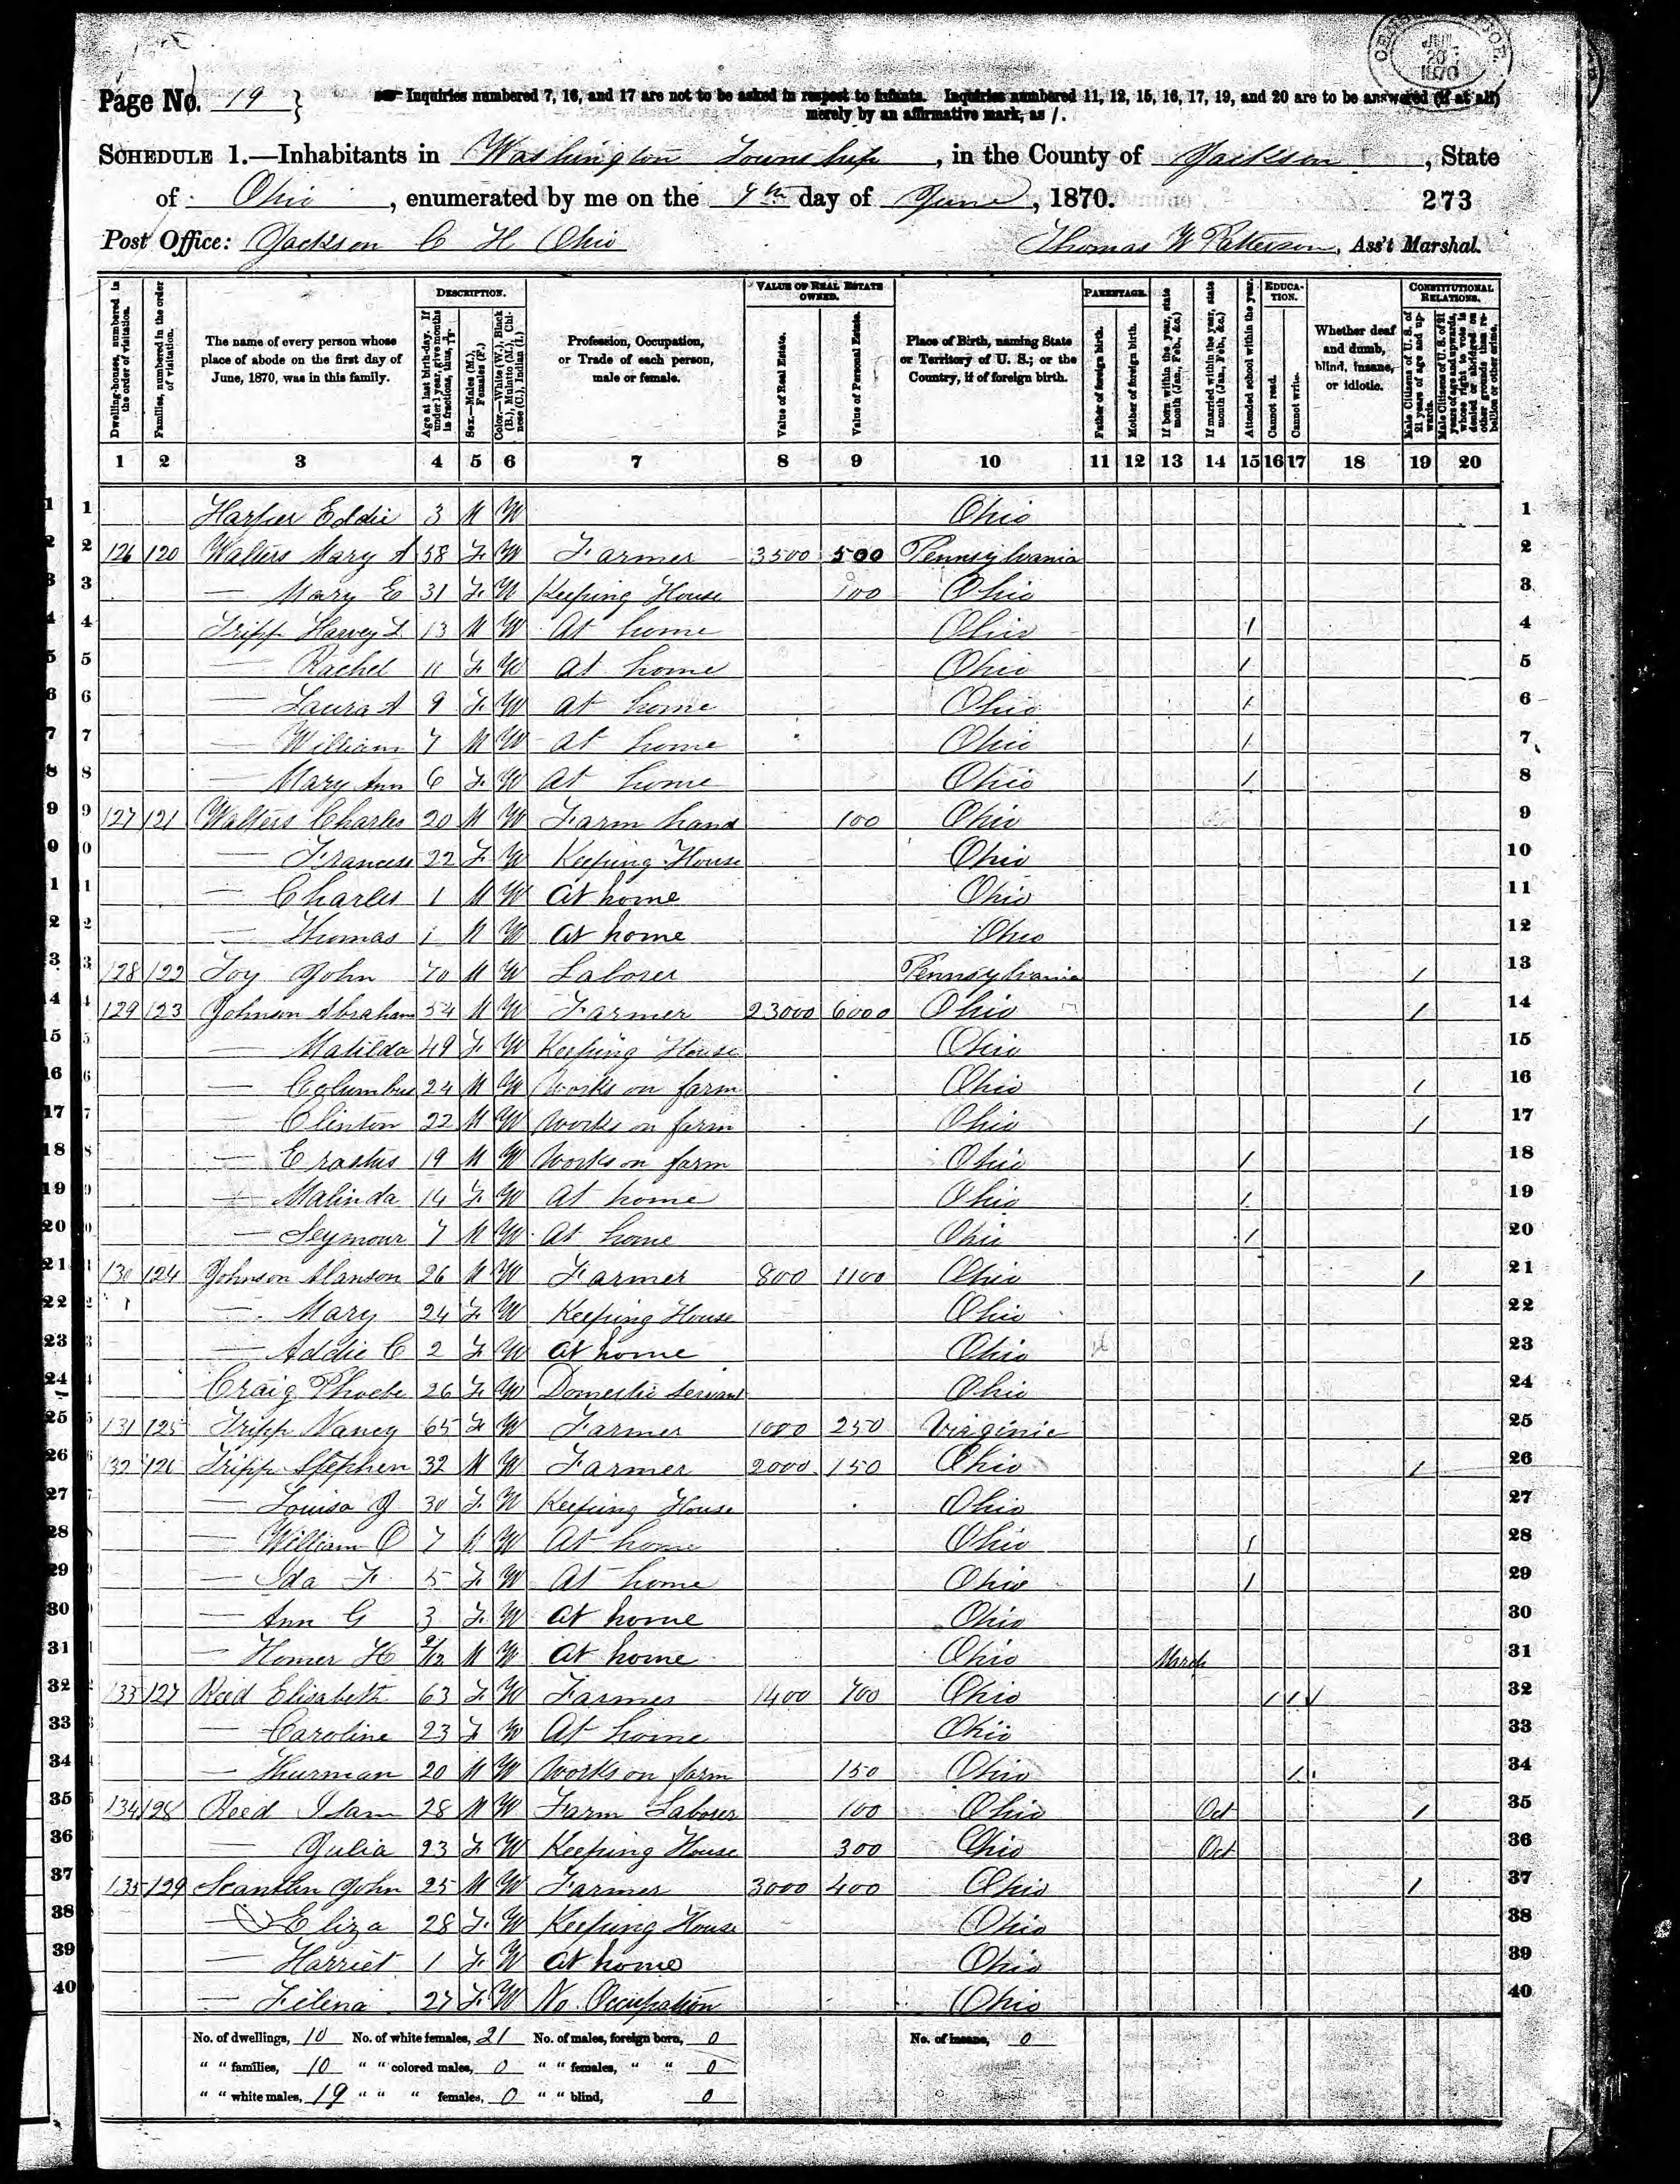 Page No. 19 }
Inquiries numbered 7, 16, and 17 are not to be asked in respect to infants. Inquiries numbered 11, 12, 15, 16, 17, 19, and 20 are to be answered (if at all)
merely by an affirmative mark, as /.
JUL
20
1870
SCHEDULE 1.—Inhabitants in Washington Township, in the County of Jackson, State
of Ohio, enumerated by me on the 9th day of June, 1870. 273
Post Office: Jackson C H Ohio Thomas W Patterson, Ass't Marshal.
DESCRIPTION. VALUE OF REAL ESTATE OWNED. PARENTAGE. EDUCATION. CONSTITUTIONAL RELATIONS.
Dwelling-houses, numbered in the order of visitation.
Families, numbered in the order of visitation.
The name of every person whose place of abode on the first day of June, 1870, was in this family.
Age at last birth-day. If under 1 year, give months in fractions, thus,
Sex.—Males (M.), Females (F.)
Color.—White (W.), Black (B.), Mulatto (M.), Chinese (C.), Indian (I.)
Profession, Occupation, or Trade of each person, male or female.
Value of Real Estate.
Value of Personal Estate.
Place of Birth, naming State or Territory of U. S.; or the Country, if of foreign birth.
Father of foreign birth.
Mother of foreign birth.
If born within the year, state month (Jan., Feb., &c.)
If married within the year, state month (Jan., Feb., &c.)
Attended school within the year.
Cannot read.
Cannot write.
Whether deaf and dumb, blind, insane, or idiotic.
Male Citizens of U. S. of 21 years of age and upwards.
Male Citizens of U. S. of 21 years of age and upwards, whose right to vote is denied or abridged on other grounds than rebellion or other crime.
1 2 3 4 5 6 7 8 9 10 11 12 13 14 15 16 17 18 19 20
1 Harper Eddie 3 M W Ohio 1
2 126 120 Walters Mary A 58 F W Farmer 3500 500 Pennsylvania 2
3 — Mary E 31 F W Keeping House 100 Ohio 3
4 Tripp Harvey L 13 M W At home Ohio / 4
5 — Rachel 11 F W At home Ohio / 5
6 — Laura A 9 F W At home Ohio / 6
7 — William 7 M W At home Ohio / 7
8 — Mary Ann 6 F W At home Ohio / 8
9 127 121 Walters Charles 20 M W Farm hand 100 Ohio 9
10 — Frances 22 F W Keeping House Ohio 10
11 — Charles 1 M W At home Ohio 11
12 — Thomas 1 M W At home Ohio 12
13 128 122 Foy John 70 M W Laborer Pennsylvania / 13
14 129 123 Johnson Abraham 54 M W Farmer 23000 6000 Ohio / 14
15 — Matilda 49 F W Keeping House Ohio 15
16 — Columbus 24 M W Works on farm Ohio / 16
17 — Clinton 22 M W Works on farm Ohio / 17
18 — Erastus 19 M W Works on farm Ohio / 18
19 — Malinda 14 F W At home Ohio / 19
20 — Seymour 7 M W At home Ohio / 20
21 130 124 Johnson Alanson 26 M W Farmer 800 1100 Ohio / 21
22 — Mary 24 F W Keeping House Ohio 22
23 — Addie C 2 F W At home Ohio 23
24 Craig Phoebe 26 F W Domestic Servant Ohio 24
25 131 125 Tripp Nancy 65 F W Farmer 1000 250 Virginia 25
26 132 126 Tripp Stephen 32 M W Farmer 2000 150 Ohio / 26
27 — Louisa J 30 F W Keeping House Ohio 27
28 — William O 7 M W At home Ohio / 28
29 — Ida F 5 F W At home Ohio / 29
30 — Ann G 3 F W At home Ohio 30
31 — Homer H 2/12 M W At home Ohio March 31
32 133 127 Reed Elisabeth 63 F W Farmer 1400 700 Ohio / / 32
33 — Caroline 23 F W At home Ohio 33
34 — Thurman 20 M W Works on farm 150 Ohio / 34
35 134 128 Reed Isam 28 M W Farm Laborer 100 Ohio Oct / 35
36 — Julia 23 F W Keeping House 300 Ohio Oct 36
37 135 129 Scanlin John 25 M W Farmer 3000 400 Ohio / 37
38 — Eliza 28 F W Keeping House Ohio 38
39 — Harriet 1 F W At home Ohio 39
40 — Felena 27 F W No Occupation Ohio 40
No. of dwellings, 10 No. of white females, 21 No. of males, foreign born, 0 No. of insane, 0
" " families, 10 " " colored males, 0 " " females, " " 0
" " white males, 19 " " " females, 0 " " blind, 0